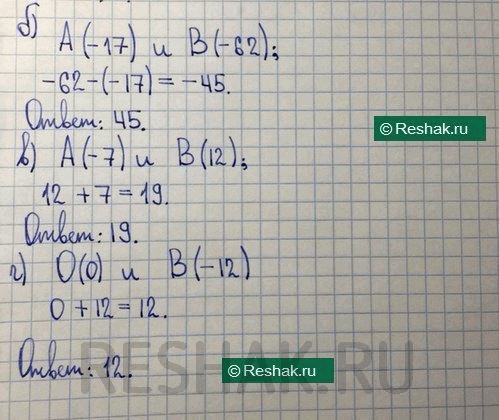 б)
А(-17) и В(-62);
-62-(-17)=-45.
Ответ: 45.
© Reshak.ru
в) А(-7) и В(12);
12 + 7 = 19.
Ответ: 19.
г) О(0) и В(-12)
0 + 12 = 12.
RESHAK.RU
Ответ: 12.
© Reshak.ru